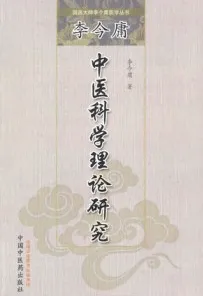 国医大师李今庸医学丛书
李今庸
中医科学理论研究
李今庸 著
中国中医药出版社